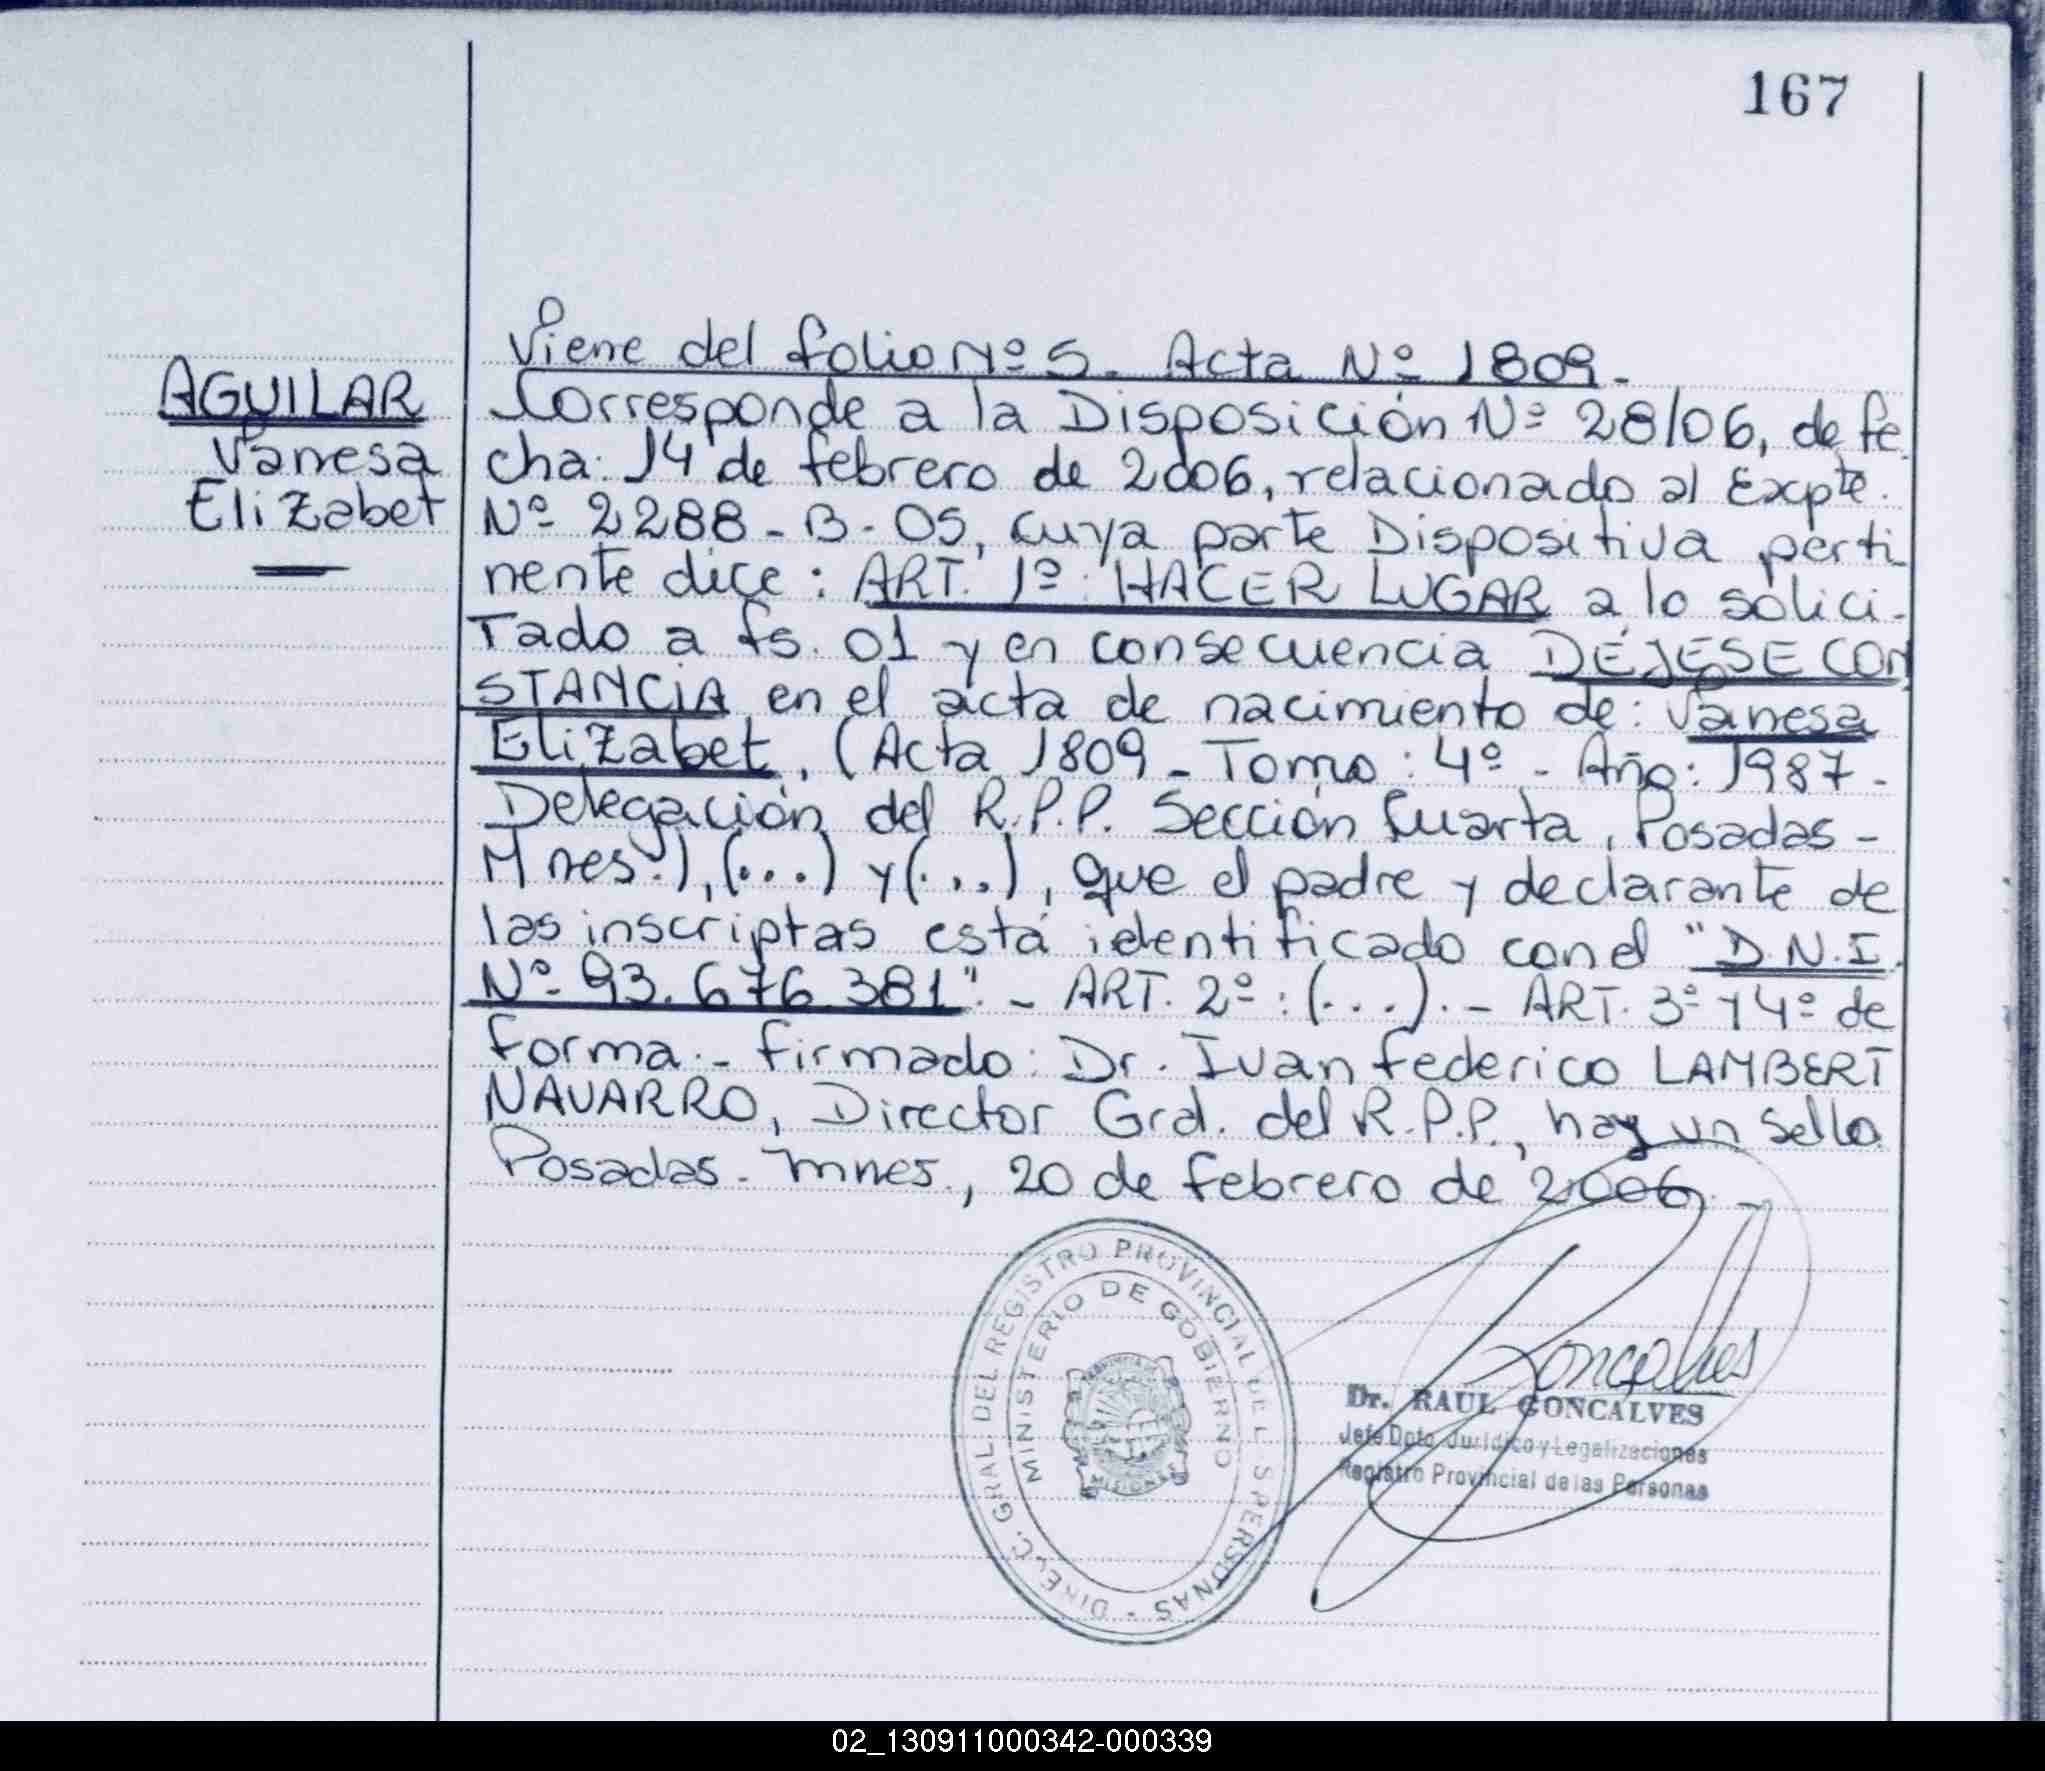 167
AGUILAR
Vanesa
Elizabet
Viene del folio Nº 5. Acta Nº 1809.-
Corresponde a la Disposición Nº 28/06, de fe
cha: 14 de febrero de 2006, relacionado al Expte.
Nº 2288-B-05, cuya parte Dispositiva perti
nente dice: ART. 1º: HACER LUGAR a lo solici-
tado a fs. 01 y en consecuencia DÉJESE CON
STANCIA en el acta de nacimiento de: Vanesa
Elizabet, (Acta 1809 - Tomo: 4º - Año: 1987-
Delegación del R.P.P. Sección Cuarta, Posadas-
Mnes.), (...) y (...), que el padre y declarante de
las inscriptas está identificado con el "D.N.I.
Nº 93.676.381".- ART. 2º: (...).- ART. 3º y 4º de
forma.- Firmado: Dr. Ivan Federico LAMBERT
NAVARRO, Director Gral. del R.P.P., hay un sello
Posadas- Mnes., 20 de febrero de 2006.-
DIREC. GRAL. DEL REGISTRO PROVINCIAL DE L S PERSONAS -
MINISTERIO DE GOBIERNO
PROVINCIA DE
MISIONES
Goncalves
Dr. RAUL GONCALVES
Jefe Dpto. Jurídico y Legalizaciones
Registro Provincial de las Personas
02_130911000342-000339